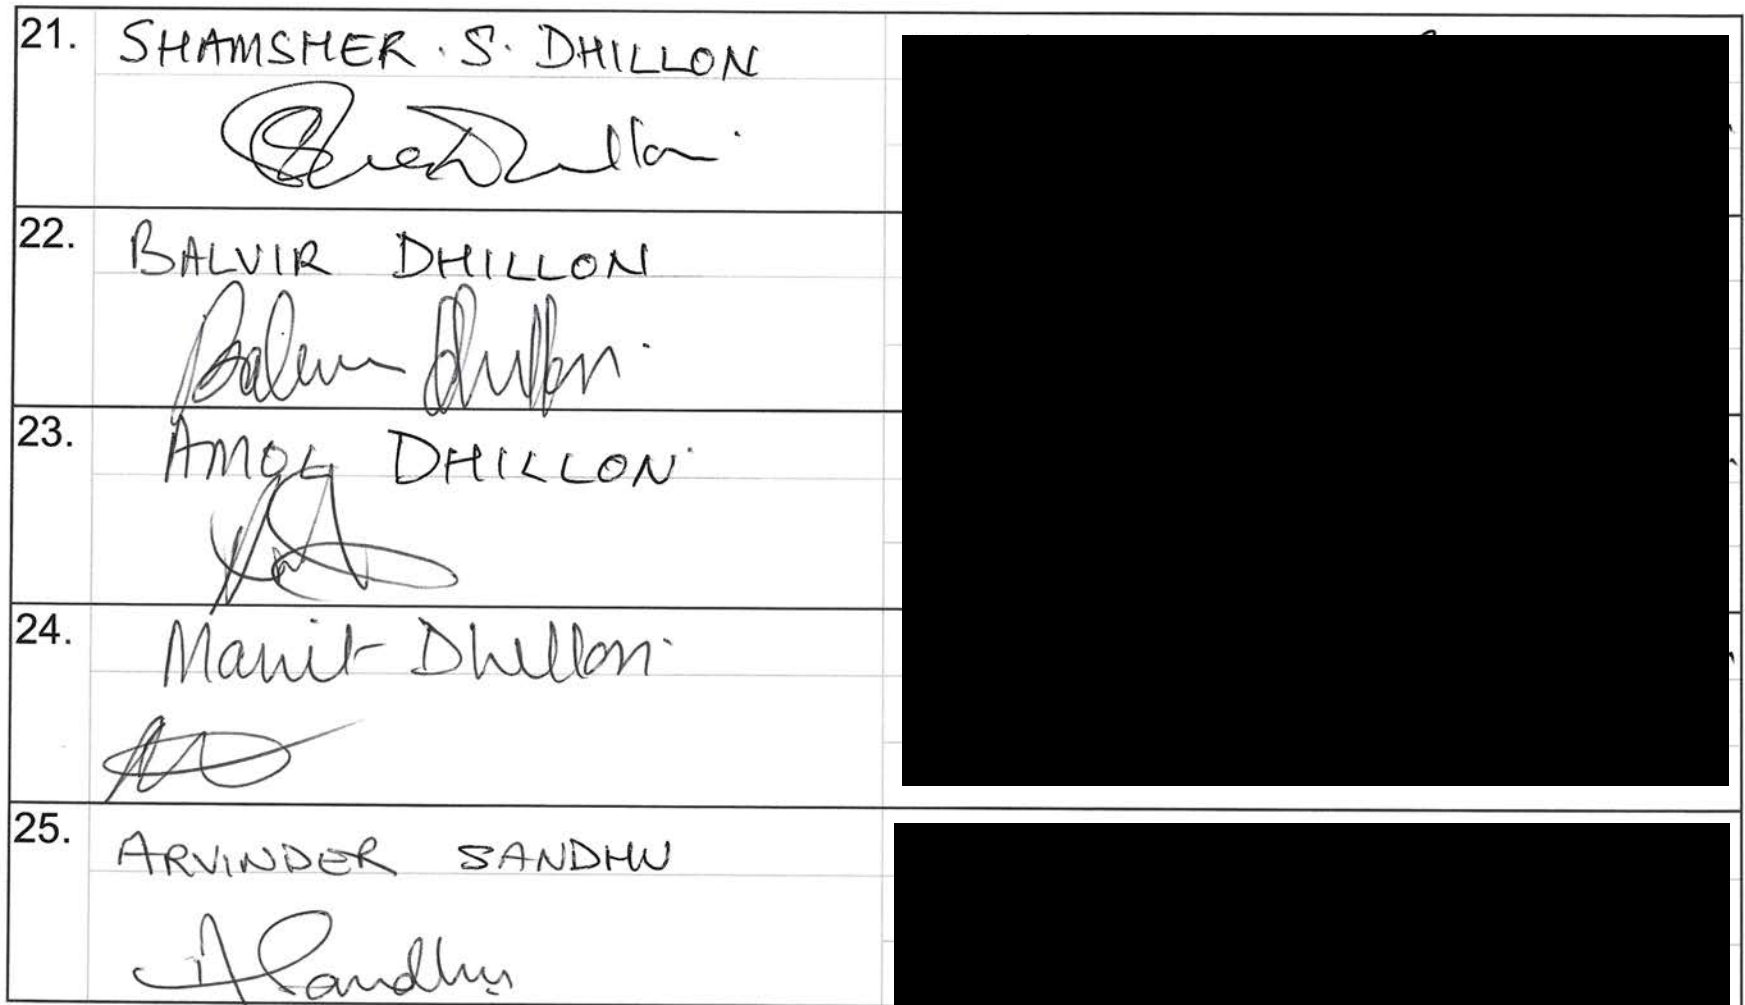 21. SHAMSHER . S. DHILLON
22. BALVIR DHILLON
Dhillon
23. AMOL DHILLON
24. Manit Dhillon
25. ARVINDER SANDHU
A Sandhu